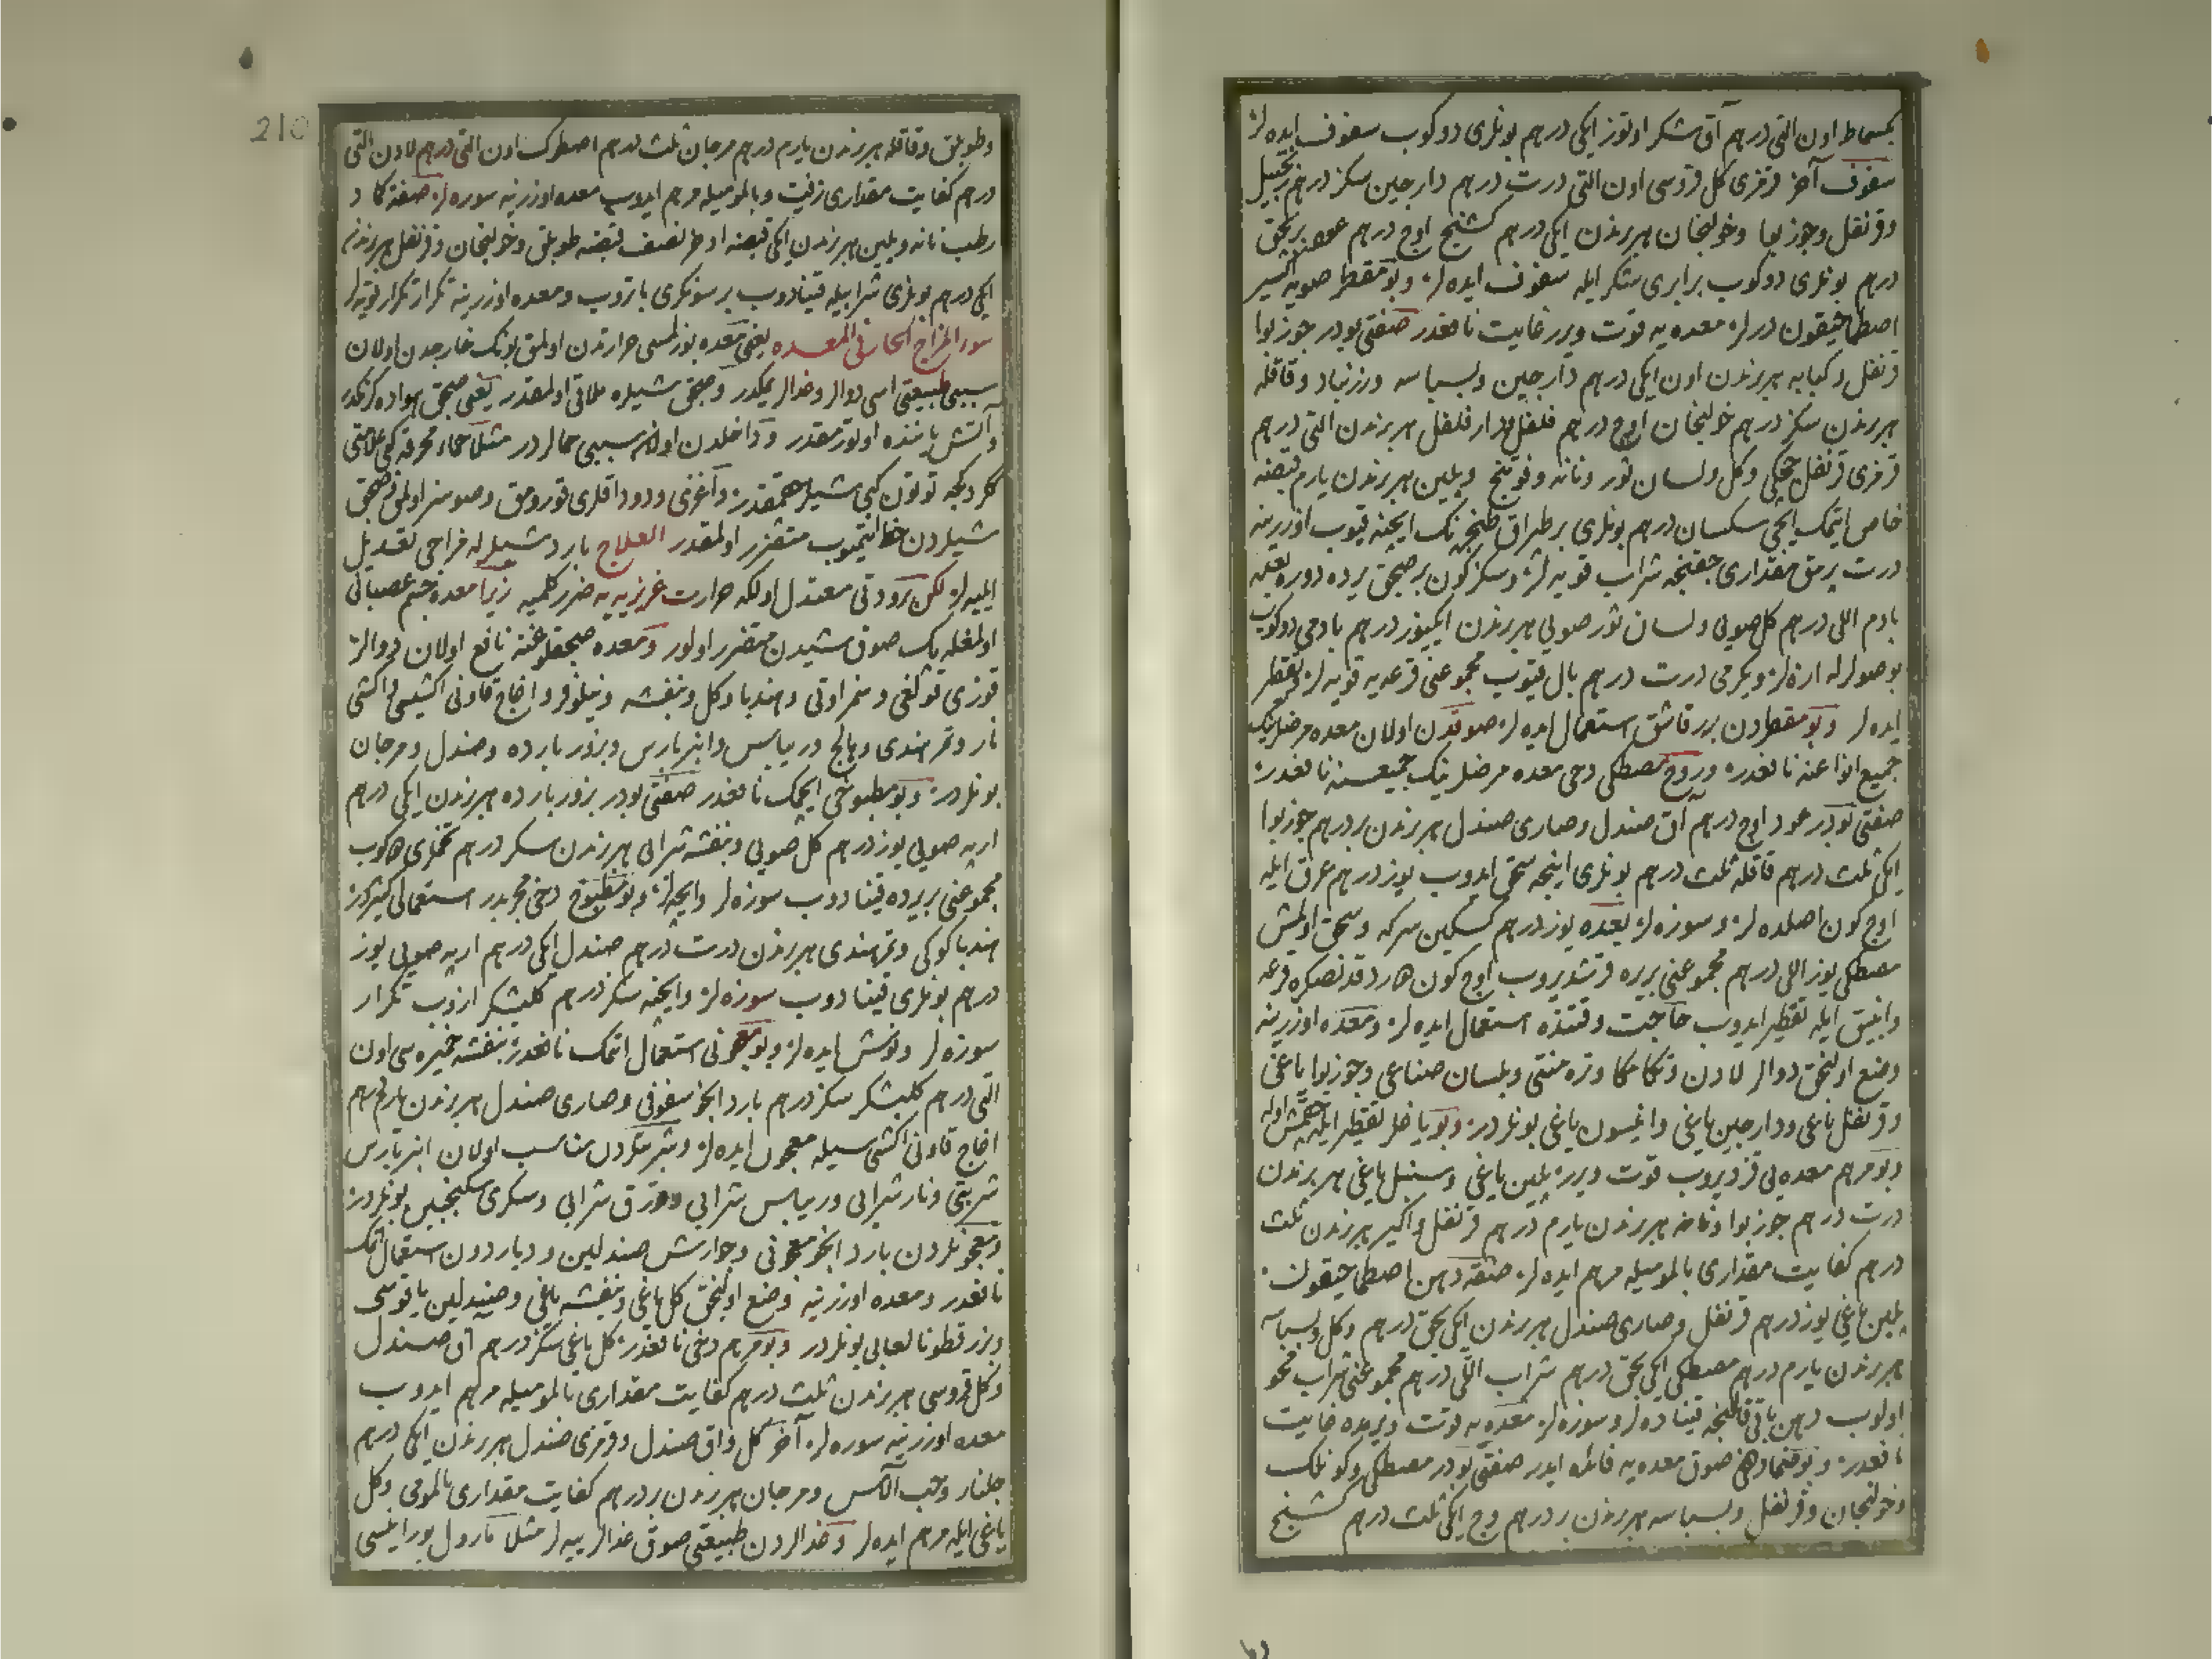 بكسماط اون التى درهم آق شكر اوتوز ايكى درهم بونلرى دوكوب سفوف ايده لر
سفوف آخر قرمزى كل قروسى اون التى درت درهم دارجين سكز درهم زنجبيل
وقرنفل وجوز بوا وخولنجان هر برندن ايكى درهم كشنج اوج درهم بر بچق
درهم بونلرى دوكوب برابرى شكر ايله سفوف ايده لر وبو مقطر صويه اكسير
اصطماخيقون درلر معده يه قوت ويرر غايت نافعدر صنعتى بودر جوز بوا
قرنفل وكبابه هر برندن اون ايكى درهم دارجين وبسباسه وزرنباد وقاقله
هر برندن سكز درهم خولنجان اوج درهم فلفل ودار فلفل هر برندن التى درهم
قرمزى قرنفل چچكى وكل ولسان ثور ونانه وفوتنج وپلين هر برندن يارم قبضه
خاص اتمك ايچى سكسان درهم بونلرى بر طپراق طنجره نك ايچنه قيوب اوزرينه
درت پرمق مقدارى چقنجه شراب قويه لر وسكز كون بر صيجق يرده دوره بعده
بادم اللى درهم كل صويى ولسان ثور صويى هر برندن ايكيوز درهم بادمى دوكوب
بو صولرله ازه لر ويكرمى درت درهم بال قيوب مجموعنى قرعه يه قويه لر وتقطير
ايده لر وبو مقطردن برر قاشق استعمال ايده لر صوقدن اولان معده مرضلرينك
جميع انواعنه نافعدر وروح مصطكى دخى معده مرضلرينك جميعسنه نافعدر
صنعتى بودر عود اوج درهم آق صندل وصارى صندل هر برندن بر درهم جوز بوا
ايكى ثلث درهم قاقله ثلث درهم بونلرى اينجه سحق ايدوب يوز درهم عرق ايله
اوج كون اصلده لر وسوزه لر بعده يوز درهم كسكين سركه وسحق اولمش
مصطكى يوز اللى درهم مجموعنى بريره قرشديروب اوج كون صكره قرعه
وانبيق ايله تقطير ايدوب حاجت وقتنده استعمال ايده لر ومعده اوزرينه
وضع اولنجق دوالر لادن وتكامكا وقره منتى وبلسان صناعى وجوز بوا ياغى
وقرنفل ياغى ودارجين ياغى وانيسون ياغى بونلردر وبو ياغلر تقطير ايله چقمش اوله
وبو مرهم معده يى قزديروب قوت ويرر پلين ياغى وسنبل ياغى هر برندن
درت درهم جوز بوا هر برندن يارم درهم قرنفل واكير هر برندن ثلث
درهم كفايت مقدارى بالموميله مرهم ايده لر صنعة دهن اصطماخيقون
پلين ياغى يوز درهم قرنفل وصارى صندل هر برندن ايكى بچق درهم وكل وبسباسه
هر برندن يارم درهم مصطكى ايكى بچق درهم شراب اللى درهم مجموعنى شراب محو
اولوب دهن باقى قالنجه قينادلر وسوزه لر معده يه قوت ويرمده غايت
نافعدر وبو ضماد دخى صوق معده يه فائده ايدر صنعتى بودر مصطكى وكونلك
وخولنجان وقرنفل وبسباسه هر برندن بر درهم وج ايكى ثلث درهم كشنج
وطوپلق وقاقله هر برندن يارم درهم مرجان ثلث درهم اصطرك اون التى درهم لادن التى
درهم كفايت مقدارى زفت وبالموميله مرهم ايدوب معده اوزرينه سوره لر صفة كماد
رطب نانه وپلين هر برندن ايكى قبضه اذخر نصف قبضه طوپلق وخولنجان وقرنفل هر برندن
ايكى درهم بونلرى شرابيله قينادوب بر سونكرى باتروب معده اوزرينه تكرار تكرار قويه لر
سوء المزاج الحار فى المعده يعنى معده بوزلمسى حرارتدن اولمق بونك خارجدن اولان
سببى طبيعتى اسى دوالر وغدالر يمكدر وصيجق شيلره ملاقى اولمقدر يعنى صيجق هواده كزمكدر
وآتش ياننده اوتورمقدر وداخلدن اولان سببى حمالردر مثلا حماء محرقه كبى علامتى
ككردكجه توتون كبى شيلر چقمقدر وآغزى ودوداقلرى قورومق وصوسز اولمق وصيجق
شيلردن حظ ايتميوب متضرر اولمقدر العلاج بارد شيلرله مزاجى تعديل
ايليه لر لكن برودتى معتدل اولكه حرارت غريزيه يه ضرر كلميه زيرا معده جسم عصبانى
اولمغله پك صوق شيدن متضرر اولور ومعده صيجقلوغنه نافع اولان دوالر
قوزى قولاغى وسمز اوتى وهندبا وكل وبنفشه ونيلوفر واغاج قاونى اكشيسى واكشى
نار وتمر هندى وريباس وانبر باريس وبزور بارده وصندل ومرجان
بونلردر وبو مطبوخى ايچمك نافعدر صنعتى بودر بزور بارده هر برندن ايكى درهم
اربه صويى يوز درهم كل صويى وبنفشه شرابى هر برندن سكز درهم تخملرى دوكوب
مجموعنى بريرده قينادوب سوزه لر وايچه لر وبو مطبوخ دخى مجربدر استعمالى كثيردر
هندبا كوكى وتمر هندى هر برندن درت درهم صندل ايكى درهم اربه صويى يوز
درهم بونلرى قينادوب سوزه لر وايچنه سكز درهم كلبشكر ازوب تكرار
سوزه لر ونوش ايده لر وبو معجونى استعمال اتمك نافعدر بنفشه خميره سى اون
التى درهم كلبشكر سكز درهم بارد انجو سفوفى وصارى صندل هر برندن يارم درهم
اغاج قاونى اكشيسيله معجون ايده لر وشربتلردن مناسب اولان انبر باريس
شربتى ونار شرابى وريباس شرابى وورق شرابى وسكرى سكنجبين بونلردر
ومعجونلردن بارد انجو معجونى وجوارش صندلين ودياردون استعمال اتمك
نافعدر ومعده اوزرينه وضع اولنجق كل ياغى وبنفشه ياغى وصندلين ياقوسى
وبزر قطونا لعابى بونلردر وبو مرهم دخى نافعدر كل ياغى سكز درهم آق صندل
وكل قروسى هر برندن ثلث درهم كفايت مقدارى بالموميله مرهم ايدوب
معده اوزرينه سوره لر آخر كل وآق صندل وقرمزى صندل هر برندن ايكى درهم
جلنار وحب الآس ومرجان هر برندن بر درهم كفايت مقدارى بالمومى وكل
ياغى ايله مرهم ايده لر وغدالردن طبيعتى صوق غدالر ييه لر مثلا مارول بورانيسى
210